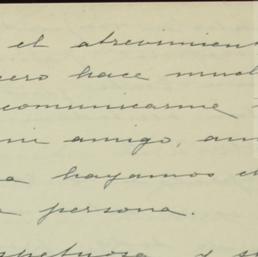 el atrevimient
ero hace much
comunicarme
mi amigo, au
a hayamos e
a persona.
spetuosa y s